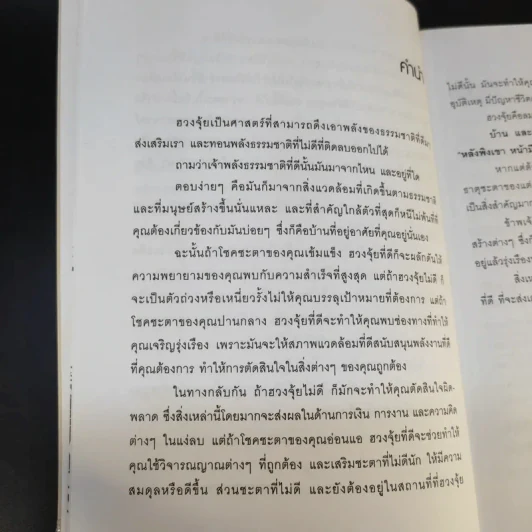 คำนำ
ฮวงจุ้ยเป็นศาสตร์ที่สามารถดึงเอาพลังของธรรมชาติที่ดีมา
ส่งเสริมเรา และทอนพลังธรรมชาติที่ไม่ดีที่ติดลบออกไปได้
ถามว่าเจ้าพลังธรรมชาติที่ดีนั้นมันมาจากไหน และอยู่ที่ใด
ตอบง่ายๆ คือมันก็มาจากสิ่งแวดล้อมที่เกิดขึ้นตามธรรมชาติ
และที่มนุษย์สร้างขึ้นนั่นแหละ และที่สำคัญใกล้ตัวที่สุดก็หนีไม่พ้นที่ที่
คุณต้องเกี่ยวข้องกับมันบ่อยๆ ซึ่งก็คือบ้านที่อยู่อาศัยที่คุณอยู่นั่นเอง
ฉะนั้นถ้าโชคชะตาของคุณเข้มแข็ง ฮวงจุ้ยที่ดีก็จะผลักดันให้
ความพยายามของคุณพบกับความสำเร็จที่สูงสุด แต่ถ้าฮวงจุ้ยไม่ดี ก็
จะเป็นตัวถ่วงหรือเหนี่ยวรั้งไม่ให้คุณบรรลุเป้าหมายที่ต้องการ แต่ถ้า
โชคชะตาของคุณปานกลาง ฮวงจุ้ยที่ดีจะทำให้คุณพบช่องทางที่ทำให้
คุณเจริญรุ่งเรือง เพราะมันจะให้สภาพแวดล้อมที่ดีสนับสนุนพลังงานที่ดี
ที่คุณต้องการ ทำให้การตัดสินใจในสิ่งต่างๆ ของคุณถูกต้อง
ในทางกลับกัน ถ้าฮวงจุ้ยไม่ดี ก็มักจะทำให้คุณตัดสินใจผิด-
พลาด ซึ่งสิ่งเหล่านี้โดยมากจะส่งผลในด้านการเงิน การงาน และความคิด
ต่างๆ ในแง่ลบ แต่ถ้าโชคชะตาของคุณอ่อนแอ ฮวงจุ้ยที่ดีจะช่วยทำให้
คุณใช้วิจารณญาณต่างๆ ที่ถูกต้อง และเสริมชะตาที่ไม่ดีนัก ให้มีความ
สมดุลหรือดีขึ้น ส่วนชะตาที่ไม่ดี และยังต้องอยู่ในสถานที่ที่ฮวงจุ้ย
ไม่ดีนั้น มันจะทำให้คุณ
อุบัติเหตุ มีปัญหาชีวิต
ฮวงจุ้ยคือลม
บ้าน และ
"หลังพิงเขา หน้ามี
หากแต่ด้
ธาตุชะตาของแต่
เป็นสิ่งสำคัญมาก
ข้าพเจ้
สร้างต่างๆ ซึ่งก็
อยู่แล้วรุ่งเรือง
สิ่งเห
ที่ดี ที่จะส่งเ